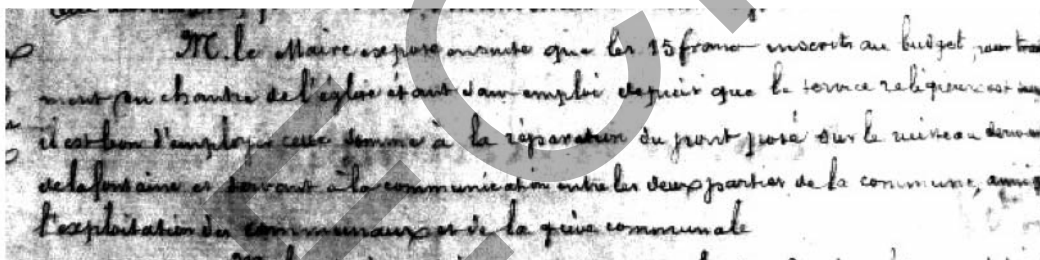 M. le Maire expose ensuite que les 15 francs inscrits au budget, pour trai
ment du chantre de l'église étant sans emploi depuis que le service religieux est
il est bon d'employer cette somme à la réparation du pont posé sur le ruisseau
de la fontaine et servant à la communication entre les deux parties de la commune, ainsi q
l'exploitation des communaux et de la communale